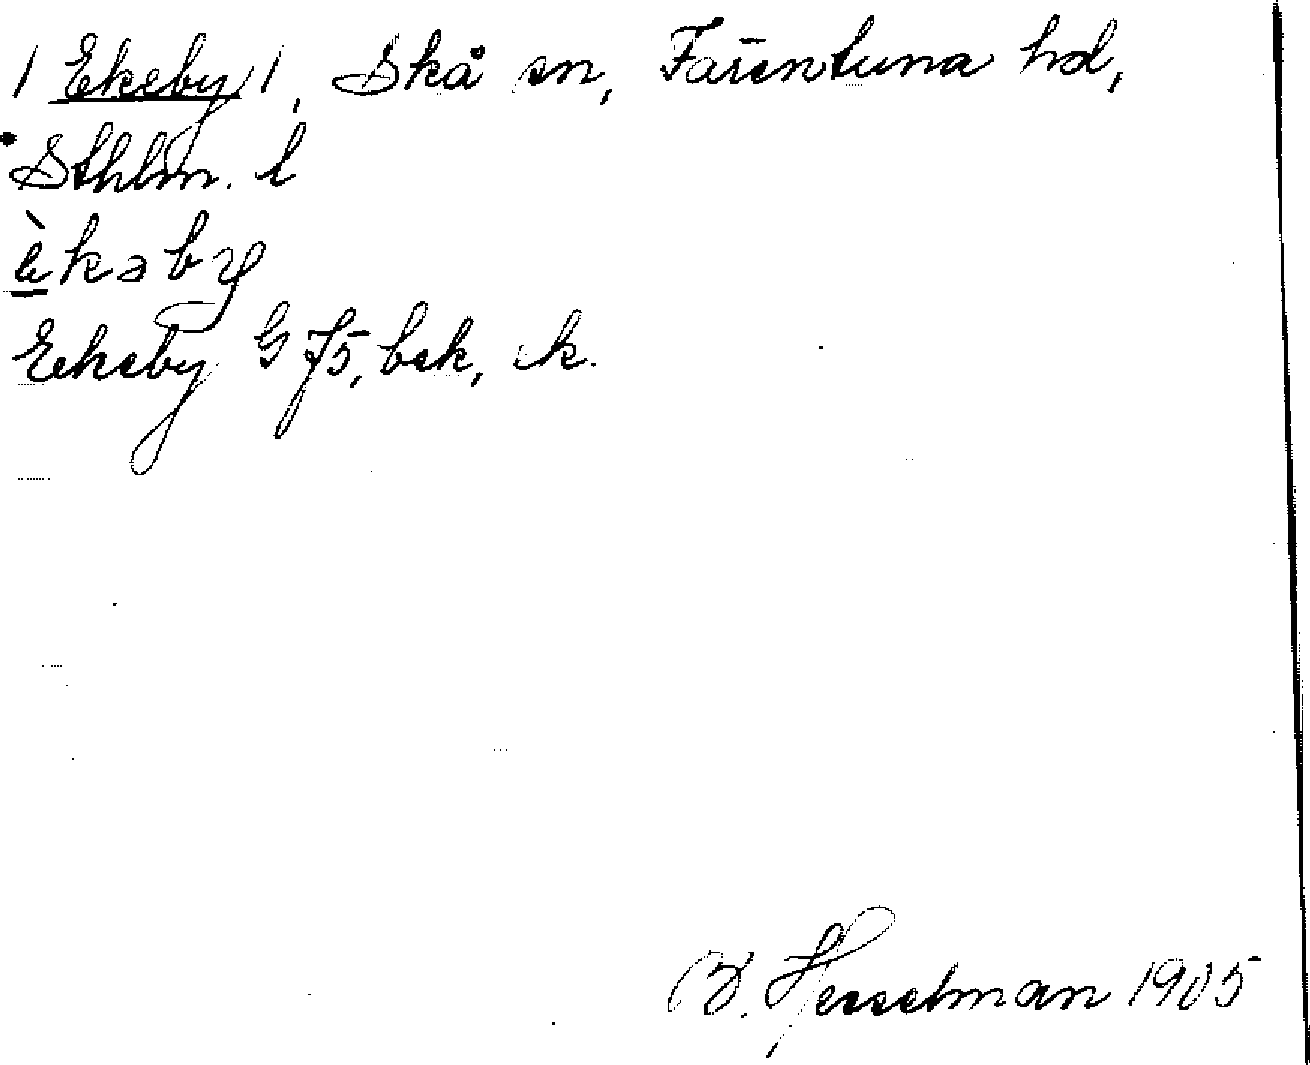 /Ekeby/, Skå sn, Färentuna hd,
Sthlm. l
èkəby
Eekeby G J5, bek, ek.
B. Hesselman 1905